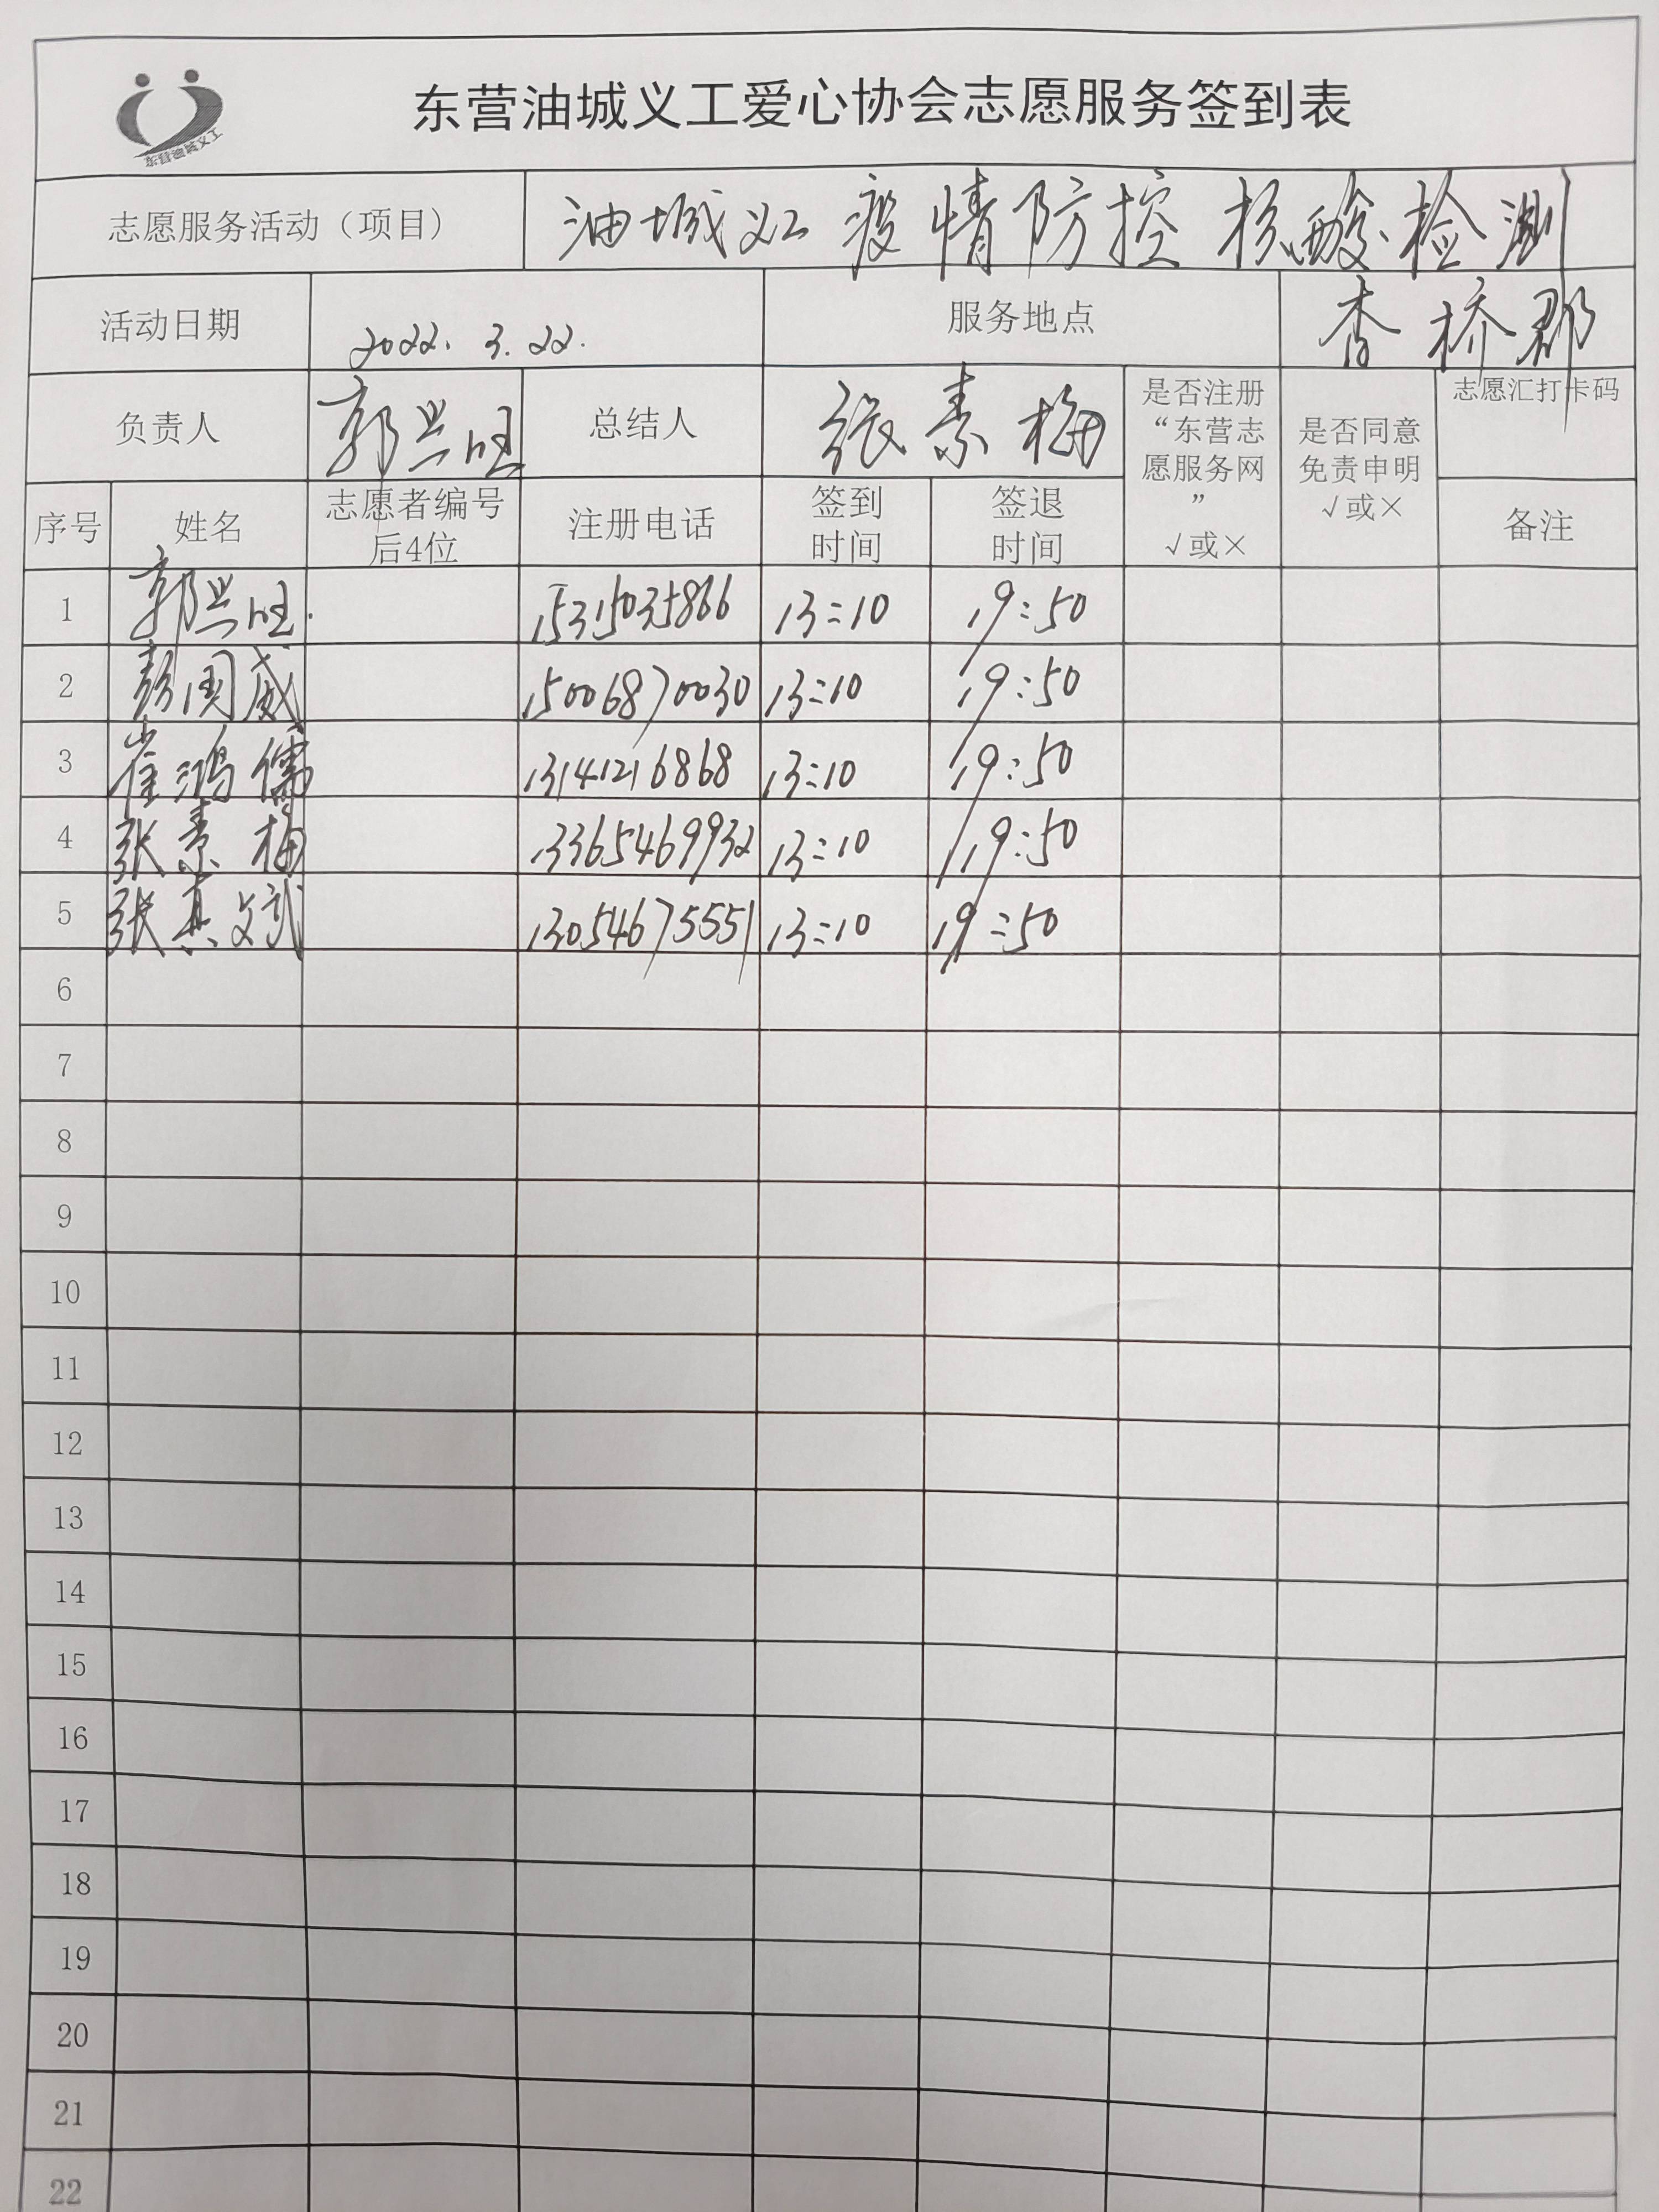 东营油城义工
东营油城义工爱心协会志愿服务签到表
志愿服务活动（项目） 油城义工疫情防控核酸检测
活动日期 2022.3.22. 服务地点 香桥郡
负责人 郭兴旺 总结人 张素梅 是否注册“东营志愿服务网”√或× 是否同意免责申明√或× 志愿汇打卡码
序号 姓名 志愿者编号后4位 注册电话 签到时间 签退时间 备注
1 郭兴旺 15315035866 13:10 19:50
2 彭国威 15006870030 13:10 19:50
3 崔鸿儒 13141216868 13:10 19:50
4 张素梅 13365469932 13:10 19:50
5 张其文斌 13054675551 13:10 19:50
6
7
8
9
10
11
12
13
14
15
16
17
18
19
20
21
22